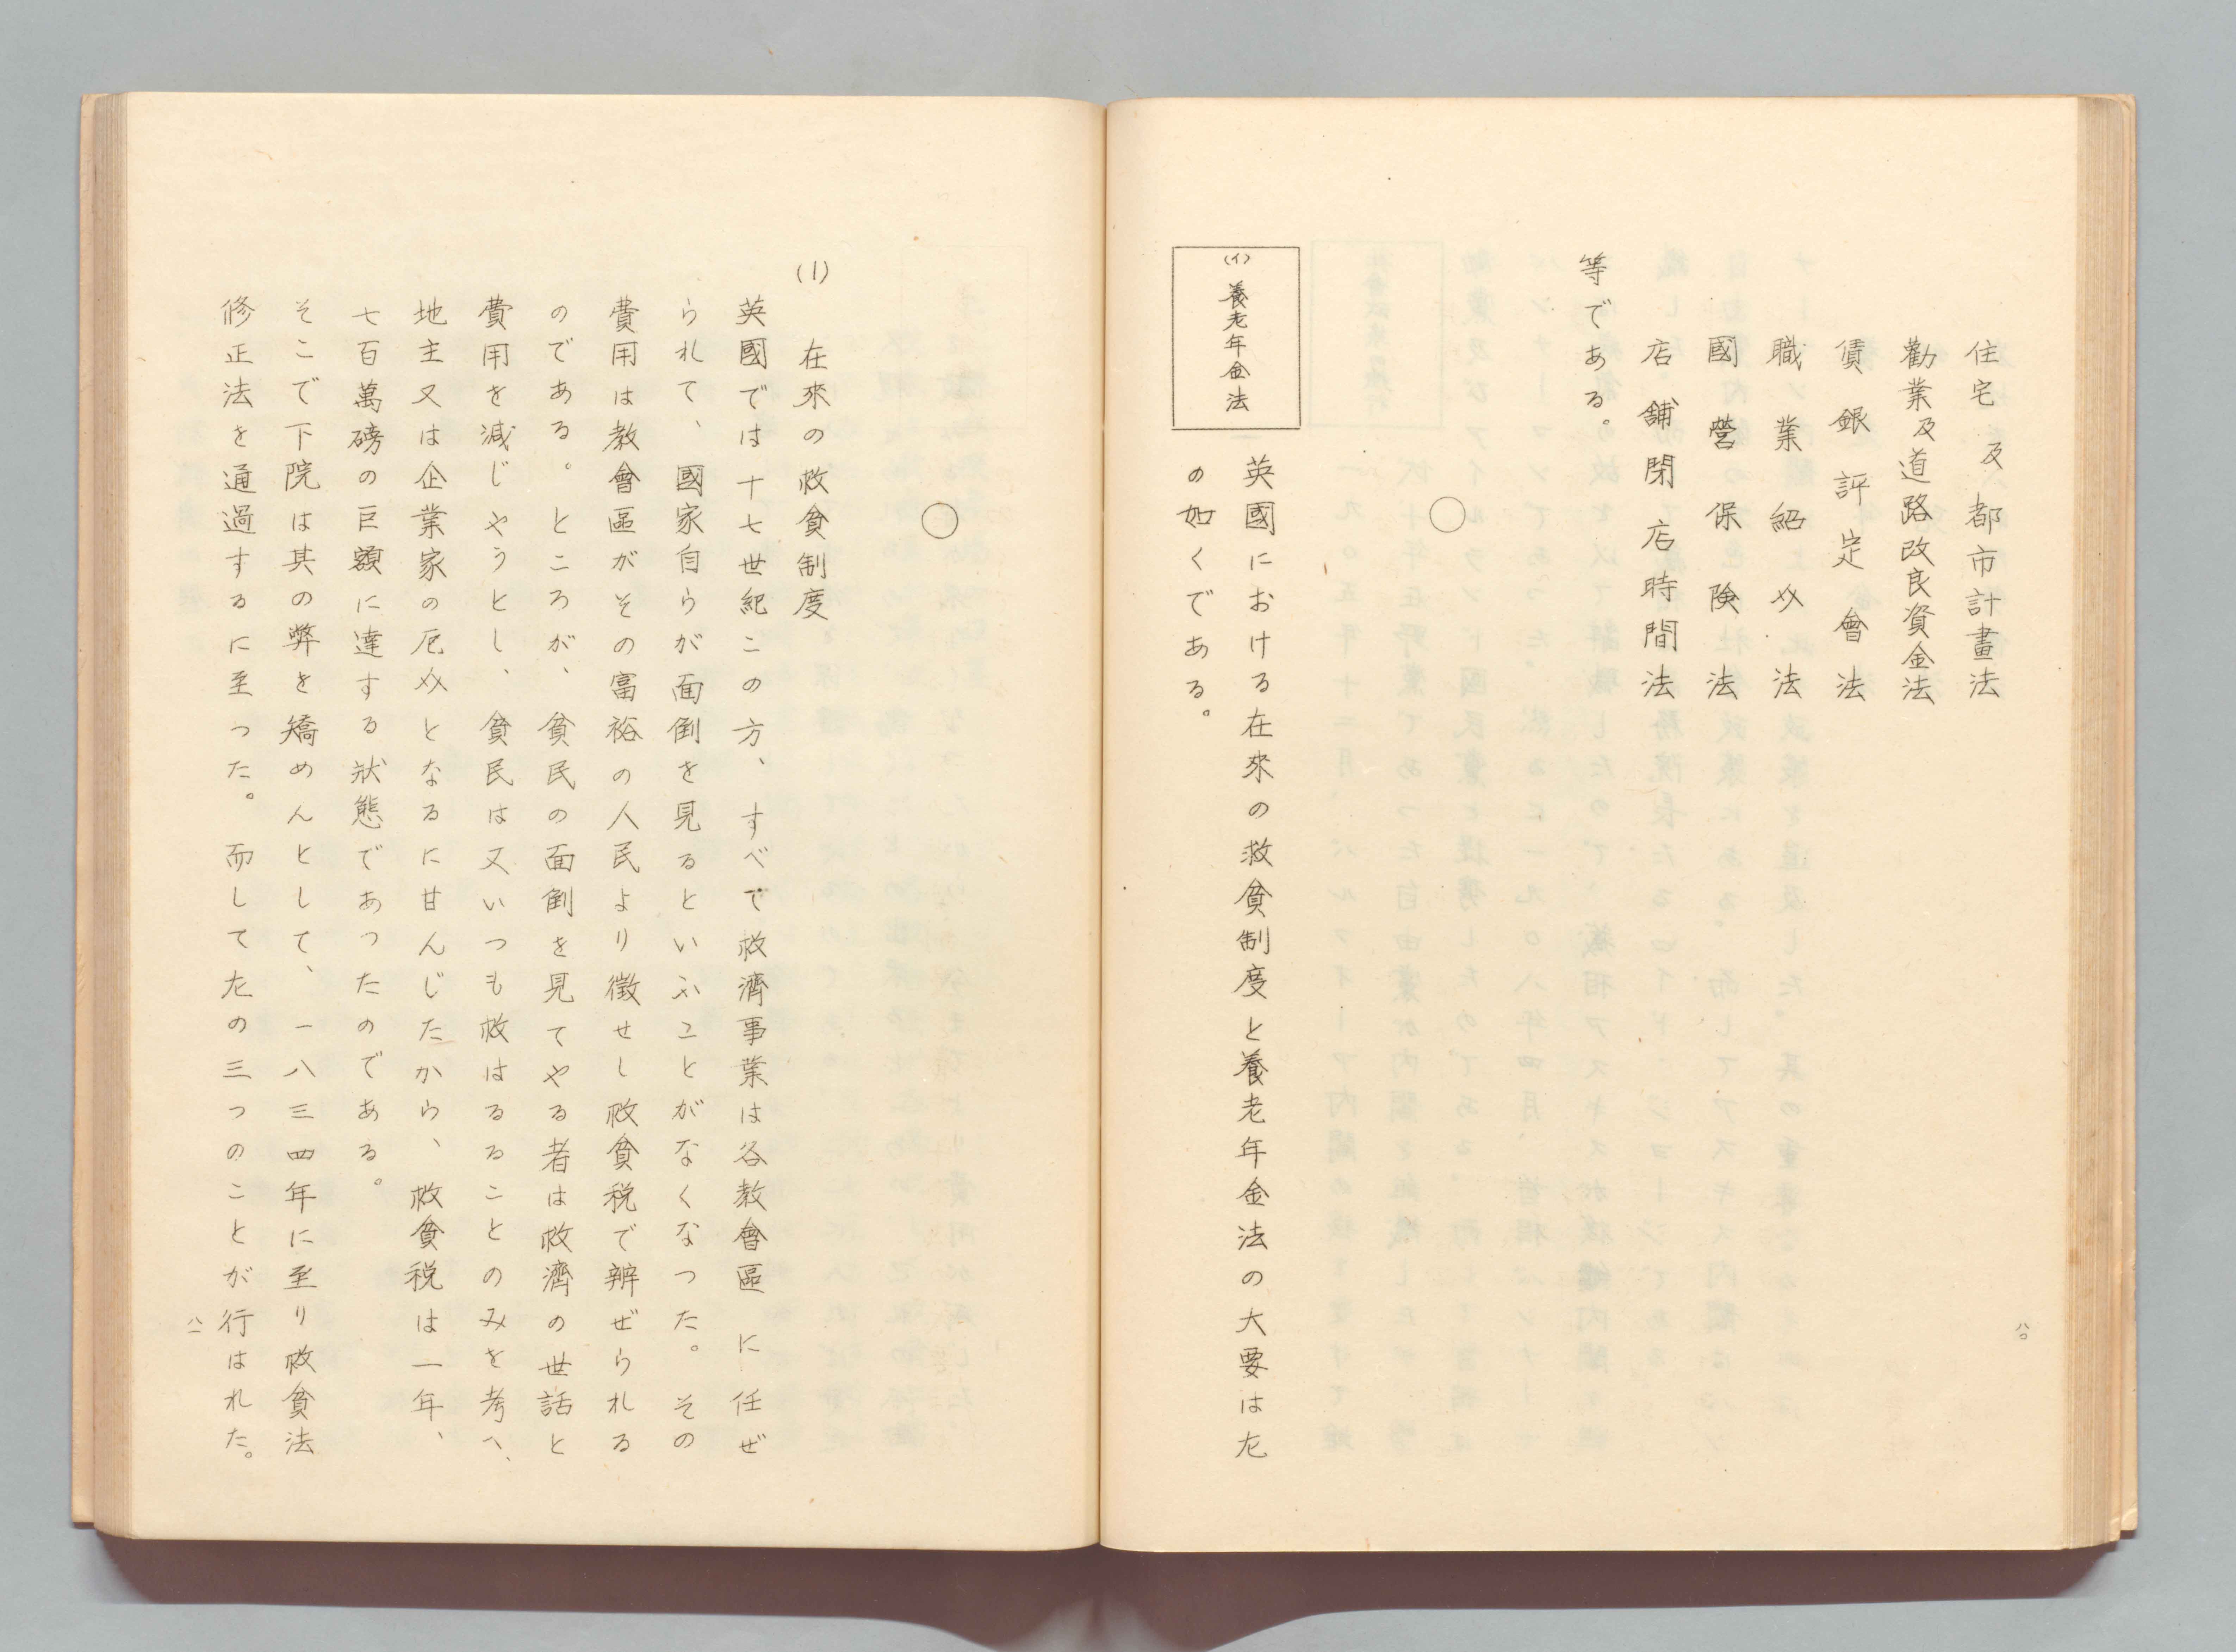 住宅及都市計畫法
勸業及道路改良資金法
賃銀評定會法
職業紹介法
國營保険法
店舗閉店時間法
等である。
○
(イ)養老年金法
英國における在來の救貧制度と養老年金法の大要は左
の如くである。
八〇
○
(1) 在來の救貧制度
英國では十七世紀この方、すべて救濟事業は各教會區に任ぜ
られて、國家自らが面倒を見るといふことがなくなつた。その
費用は教會區がその富裕の人民より徴せし救貧税で辨ぜられる
のである。ところが、貧民の面倒を見てやる者は救濟の世話と
費用を減じやうとし、貧民は又いつも救はるることのみを考へ、
地主又は企業家の厄介となるに甘んじたから、救貧税は一年、
七百萬磅の巨額に達する狀態であつたのである。
そこで下院は其の弊を矯めんとして、一八三四年に至り救貧法
修正法を通過するに至つた。而して左の三つのことが行はれた。
八一